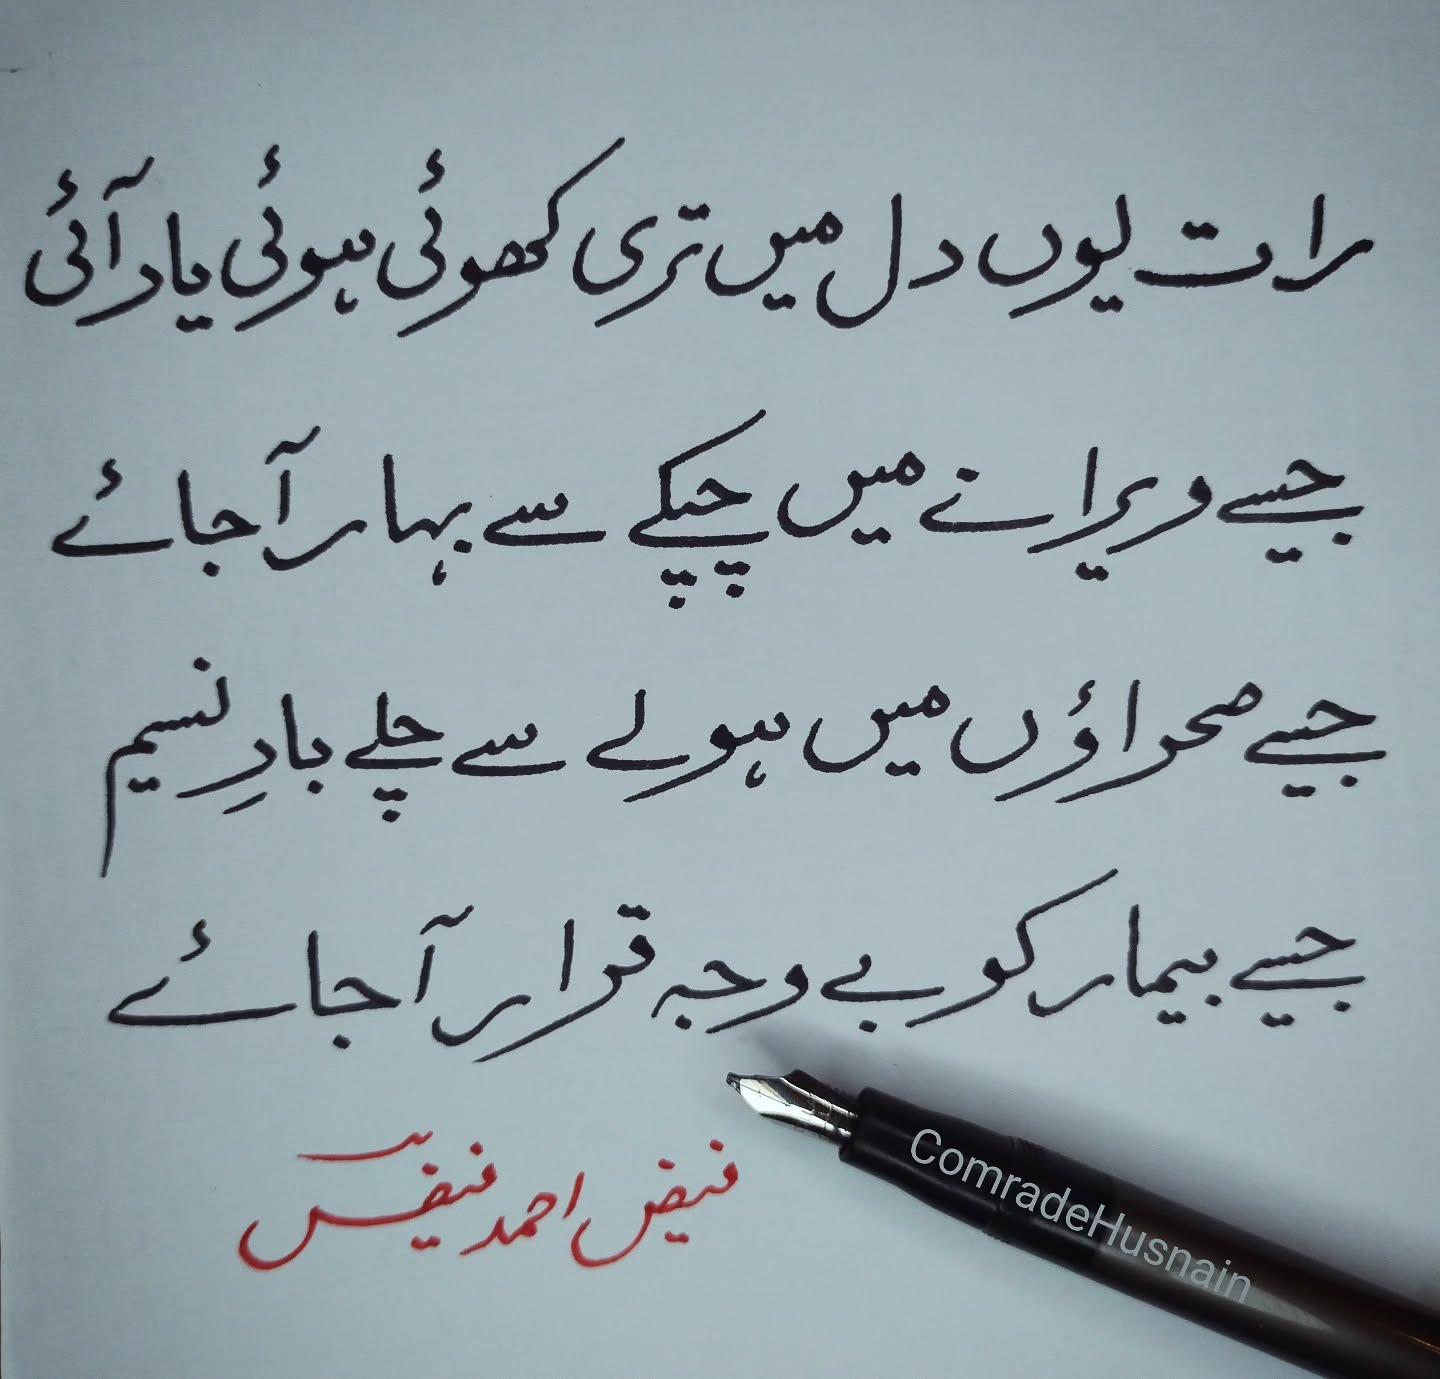 رات یوں دل میں تری کھوئی ہوئی یاد آئی
جیسے ویرانے میں چپکے سے بہار آ جائے
جیسے صحراؤں میں ہولے سے چلے بادِ نسیم
جیسے بیمار کو بے وجہ قرار آ جائے
فیض احمد فیض
ComradeHusnain